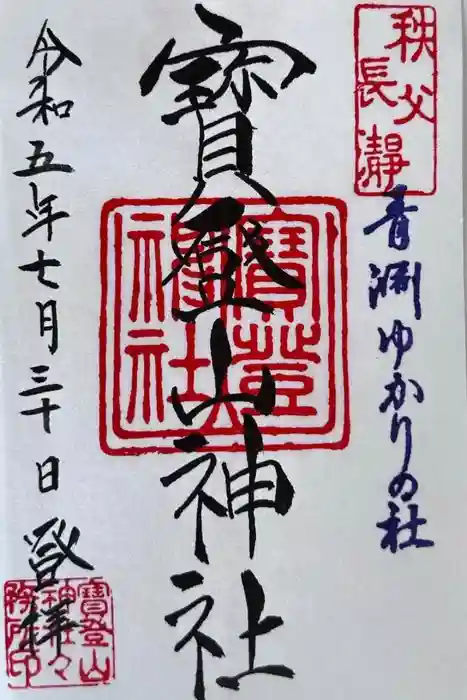 秩父
長瀞
青淵ゆかりの社
寳登山神社
寳登山
神社
令和五年七月三十日 登拝
寳登山
神社々
務所印